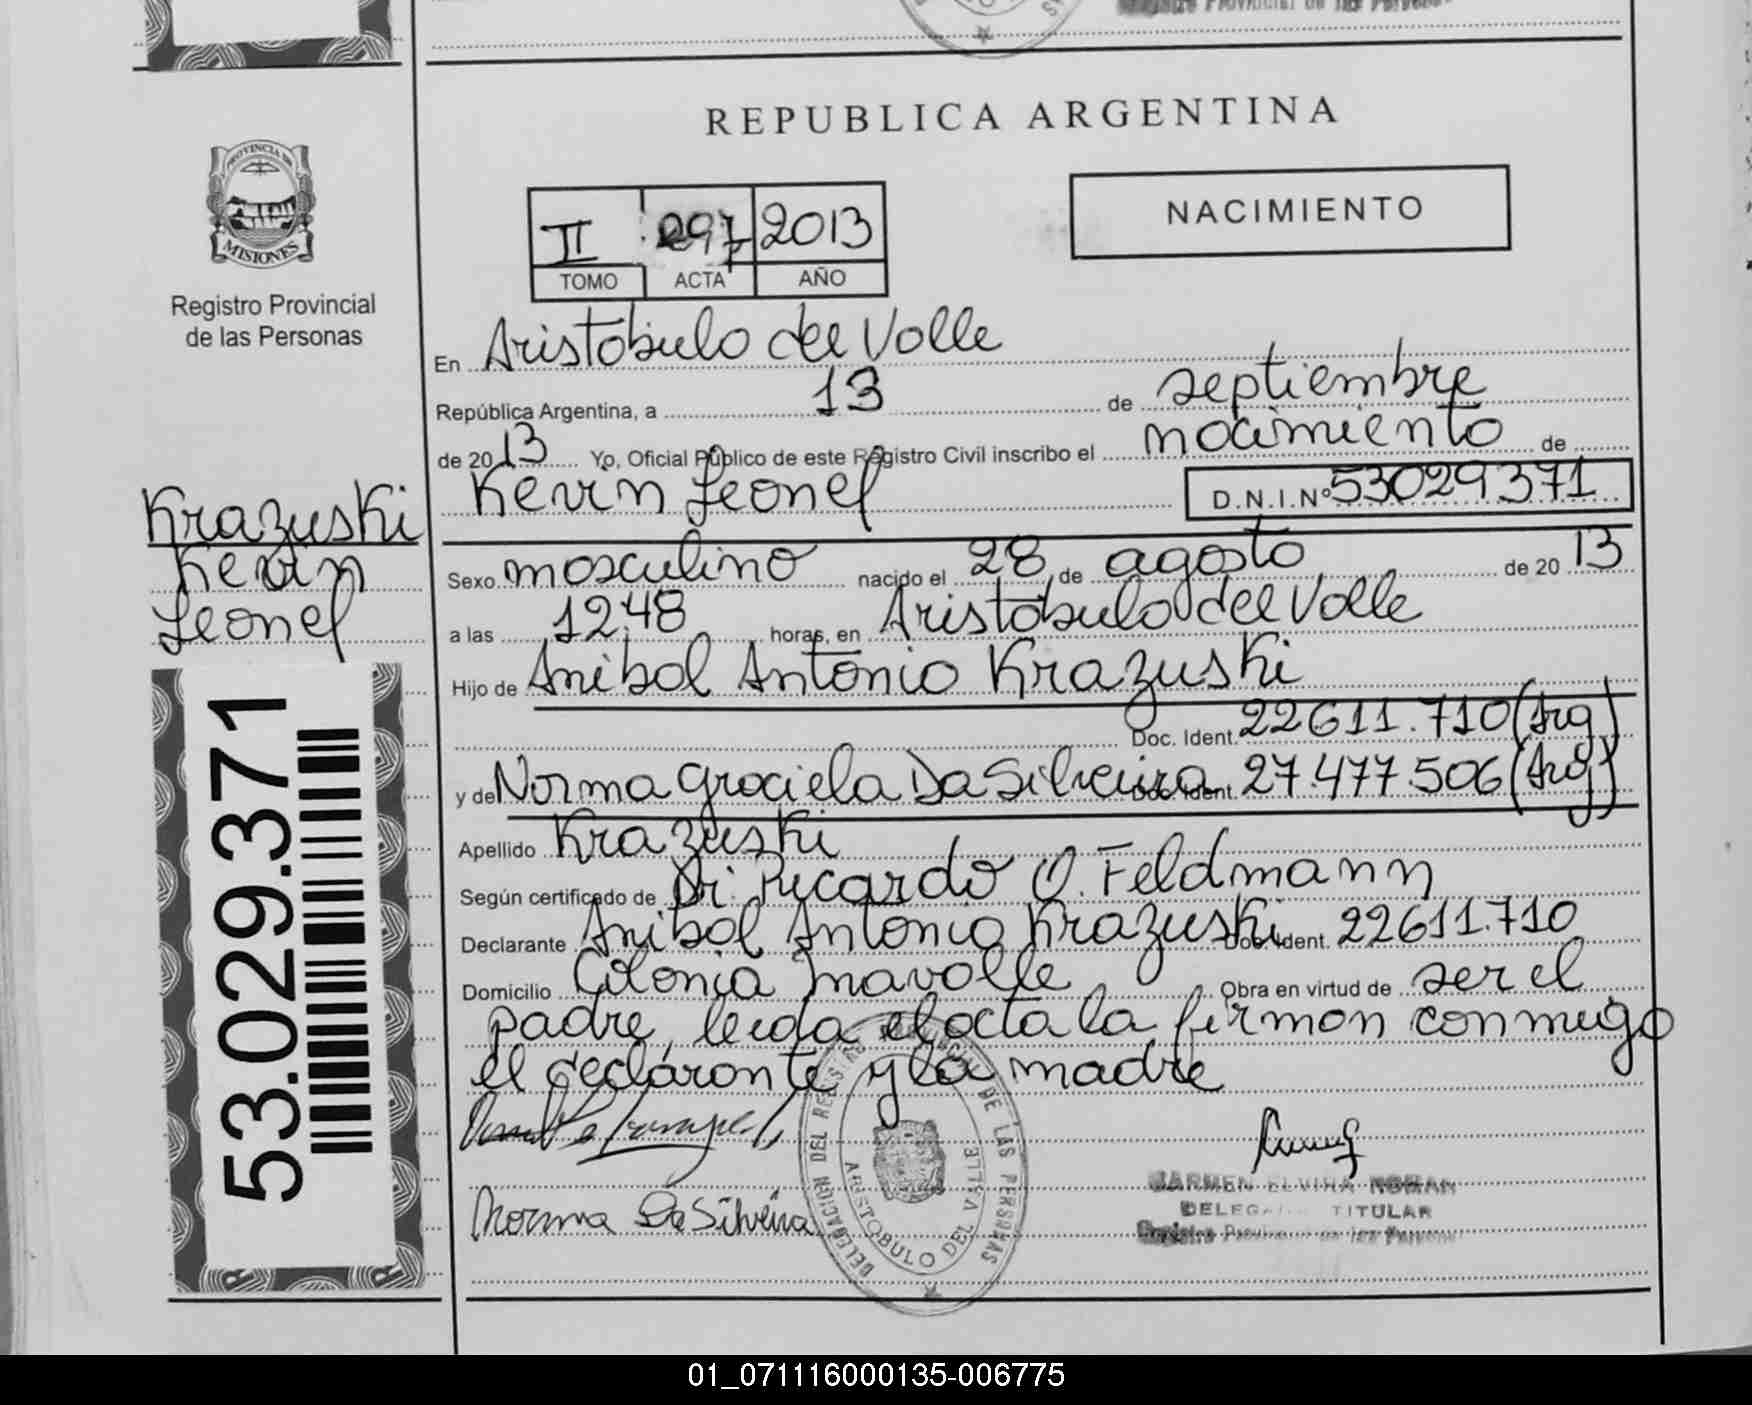 REPUBLICA ARGENTINA
PROVINCIA DE
MISIONES
Registro Provincial
de las Personas
NACIMIENTO
II 297 2013
TOMO ACTA AÑO
En Aristóbulo del Valle
República Argentina, a 13 de septiembre
de 2013 Yo, Oficial Público de este Registro Civil inscribo el nacimiento de
Kevin Leonel D.N.I.Nº 53029371
Krazuski
Kevin
Leonel
Sexo masculino nacido el 28 de agosto de 2013
a las 12,48 horas, en Aristóbulo del Valle
Hijo de Anibal Antonio Krazuski
Doc. Ident. 22611.710 (Arg)
y de Norma Graciela Da Silveira Doc. Ident. 27.477.506 (Arg)
Apellido Krazuski
Según certificado de Dr. Ricardo O. Feldmann
Declarante Anibal Antonio Krazuski Doc. Ident. 22611.710
Domicilio Colonia Inavalle Obra en virtud de ser el
padre, leida el acta la firman conmigo
el declarante y la madre
53.029.371
Norma Da Silveira
DELEGACION DEL REGISTRO PROVINCIAL DE LAS PERSONAS
ARISTOBULO DEL VALLE
CARMEN ELVIRA ROMAN
DELEGADA TITULAR
Registro Provincial de las Personas
01_071116000135-006775